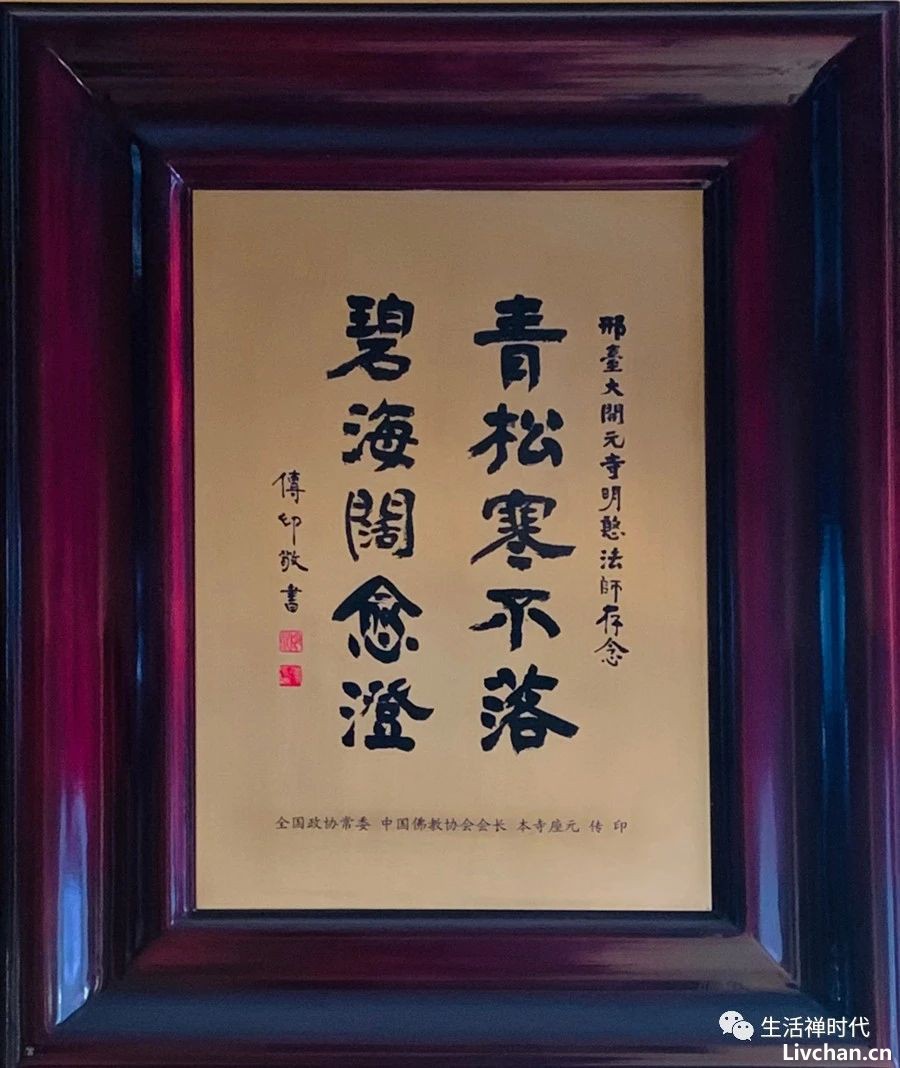 邢臺大開元寺明憨法師存念
青松寒不落
碧海闊愈澄
傳印敬書
全国政协常委 中国佛教协会会长 本寺座元 传 印
生活禅时代
Livchan.cn